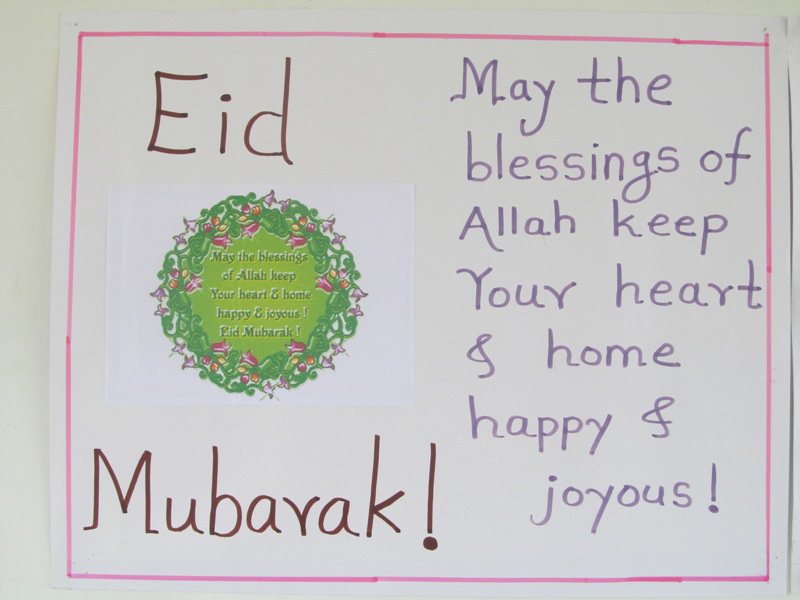 Eid
May the blessings
of Allah keep
Your heart & home
happy & joyous !
Eid Mubarak !
Mubarak!
May the
blessings of
Allah keep
Your heart
& home
happy &
joyous!